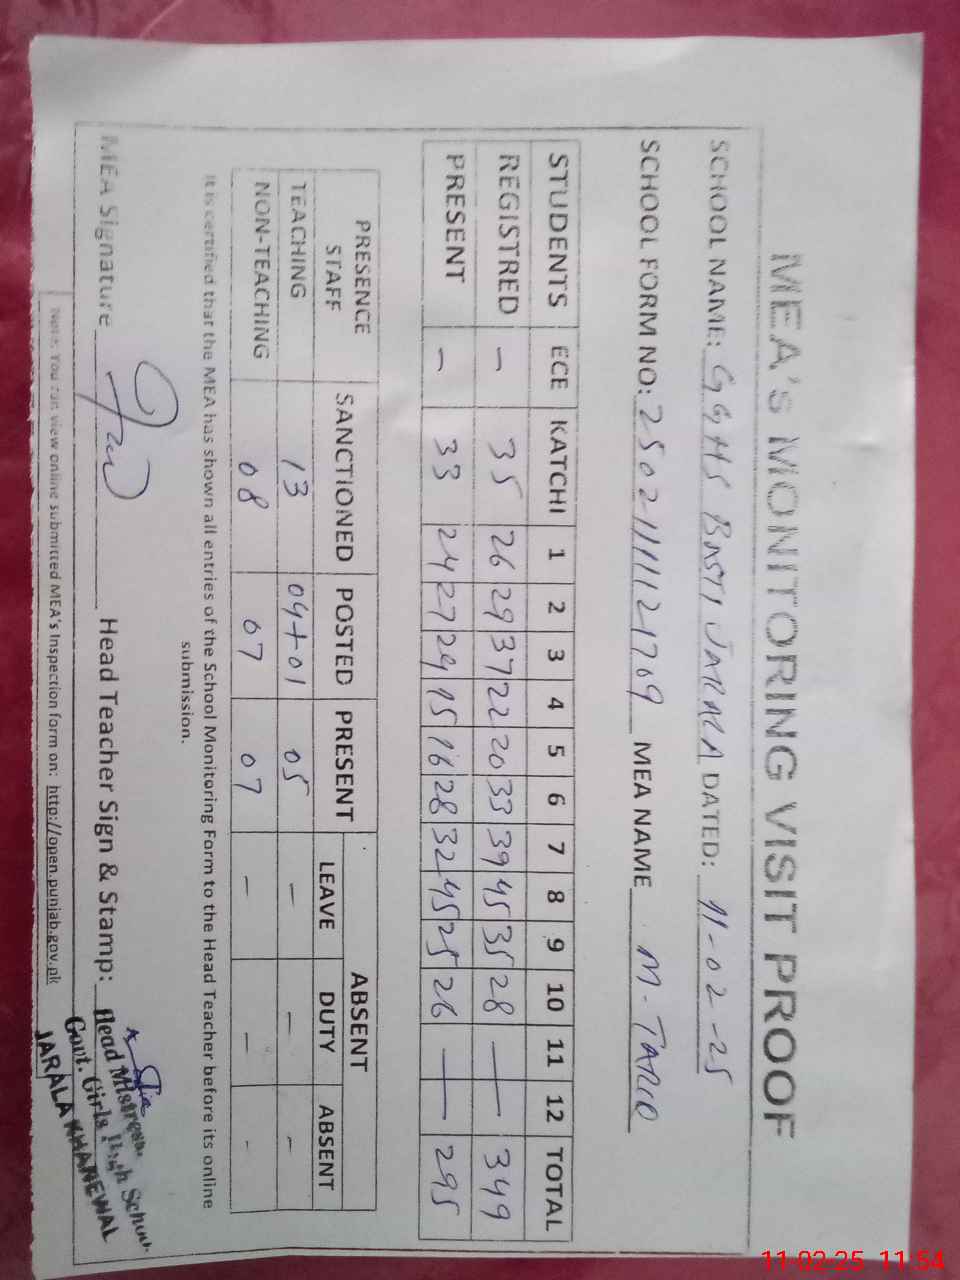 MEA's MONITORING VISIT PROOF
SCHOOL NAME: GGHS BASTI JARALA DATED: 11-02-25
SCHOOL FORM NO: 25021111121769 MEA NAME M. TARIQ
STUDENTS ECE KATCHI 1 2 3 4 5 6 7 8 9 10 11 12 TOTAL
REGISTRED - 35 26 29 37 22 20 33 39 45 35 28 — 349
PRESENT - 33 24 27 24 15 16 28 32 45 25 26 — 295
PRESENCE STAFF SANCTIONED POSTED PRESENT ABSENT
LEAVE DUTY ABSENT
TEACHING 13 04+01 05 - - -
NON-TEACHING 08 07 07 - - -
It is certified that the MEA has shown all entries of the School Monitoring Form to the Head Teacher before its online
submission.
MEA Signature Head Teacher Sign & Stamp:
Head Mistress
Govt. Girls High School
JARALA KHANEWAL
Note: You can view online submitted MEA's Inspection form on: http://open.punjab.gov.pk
11-02-25 11:54